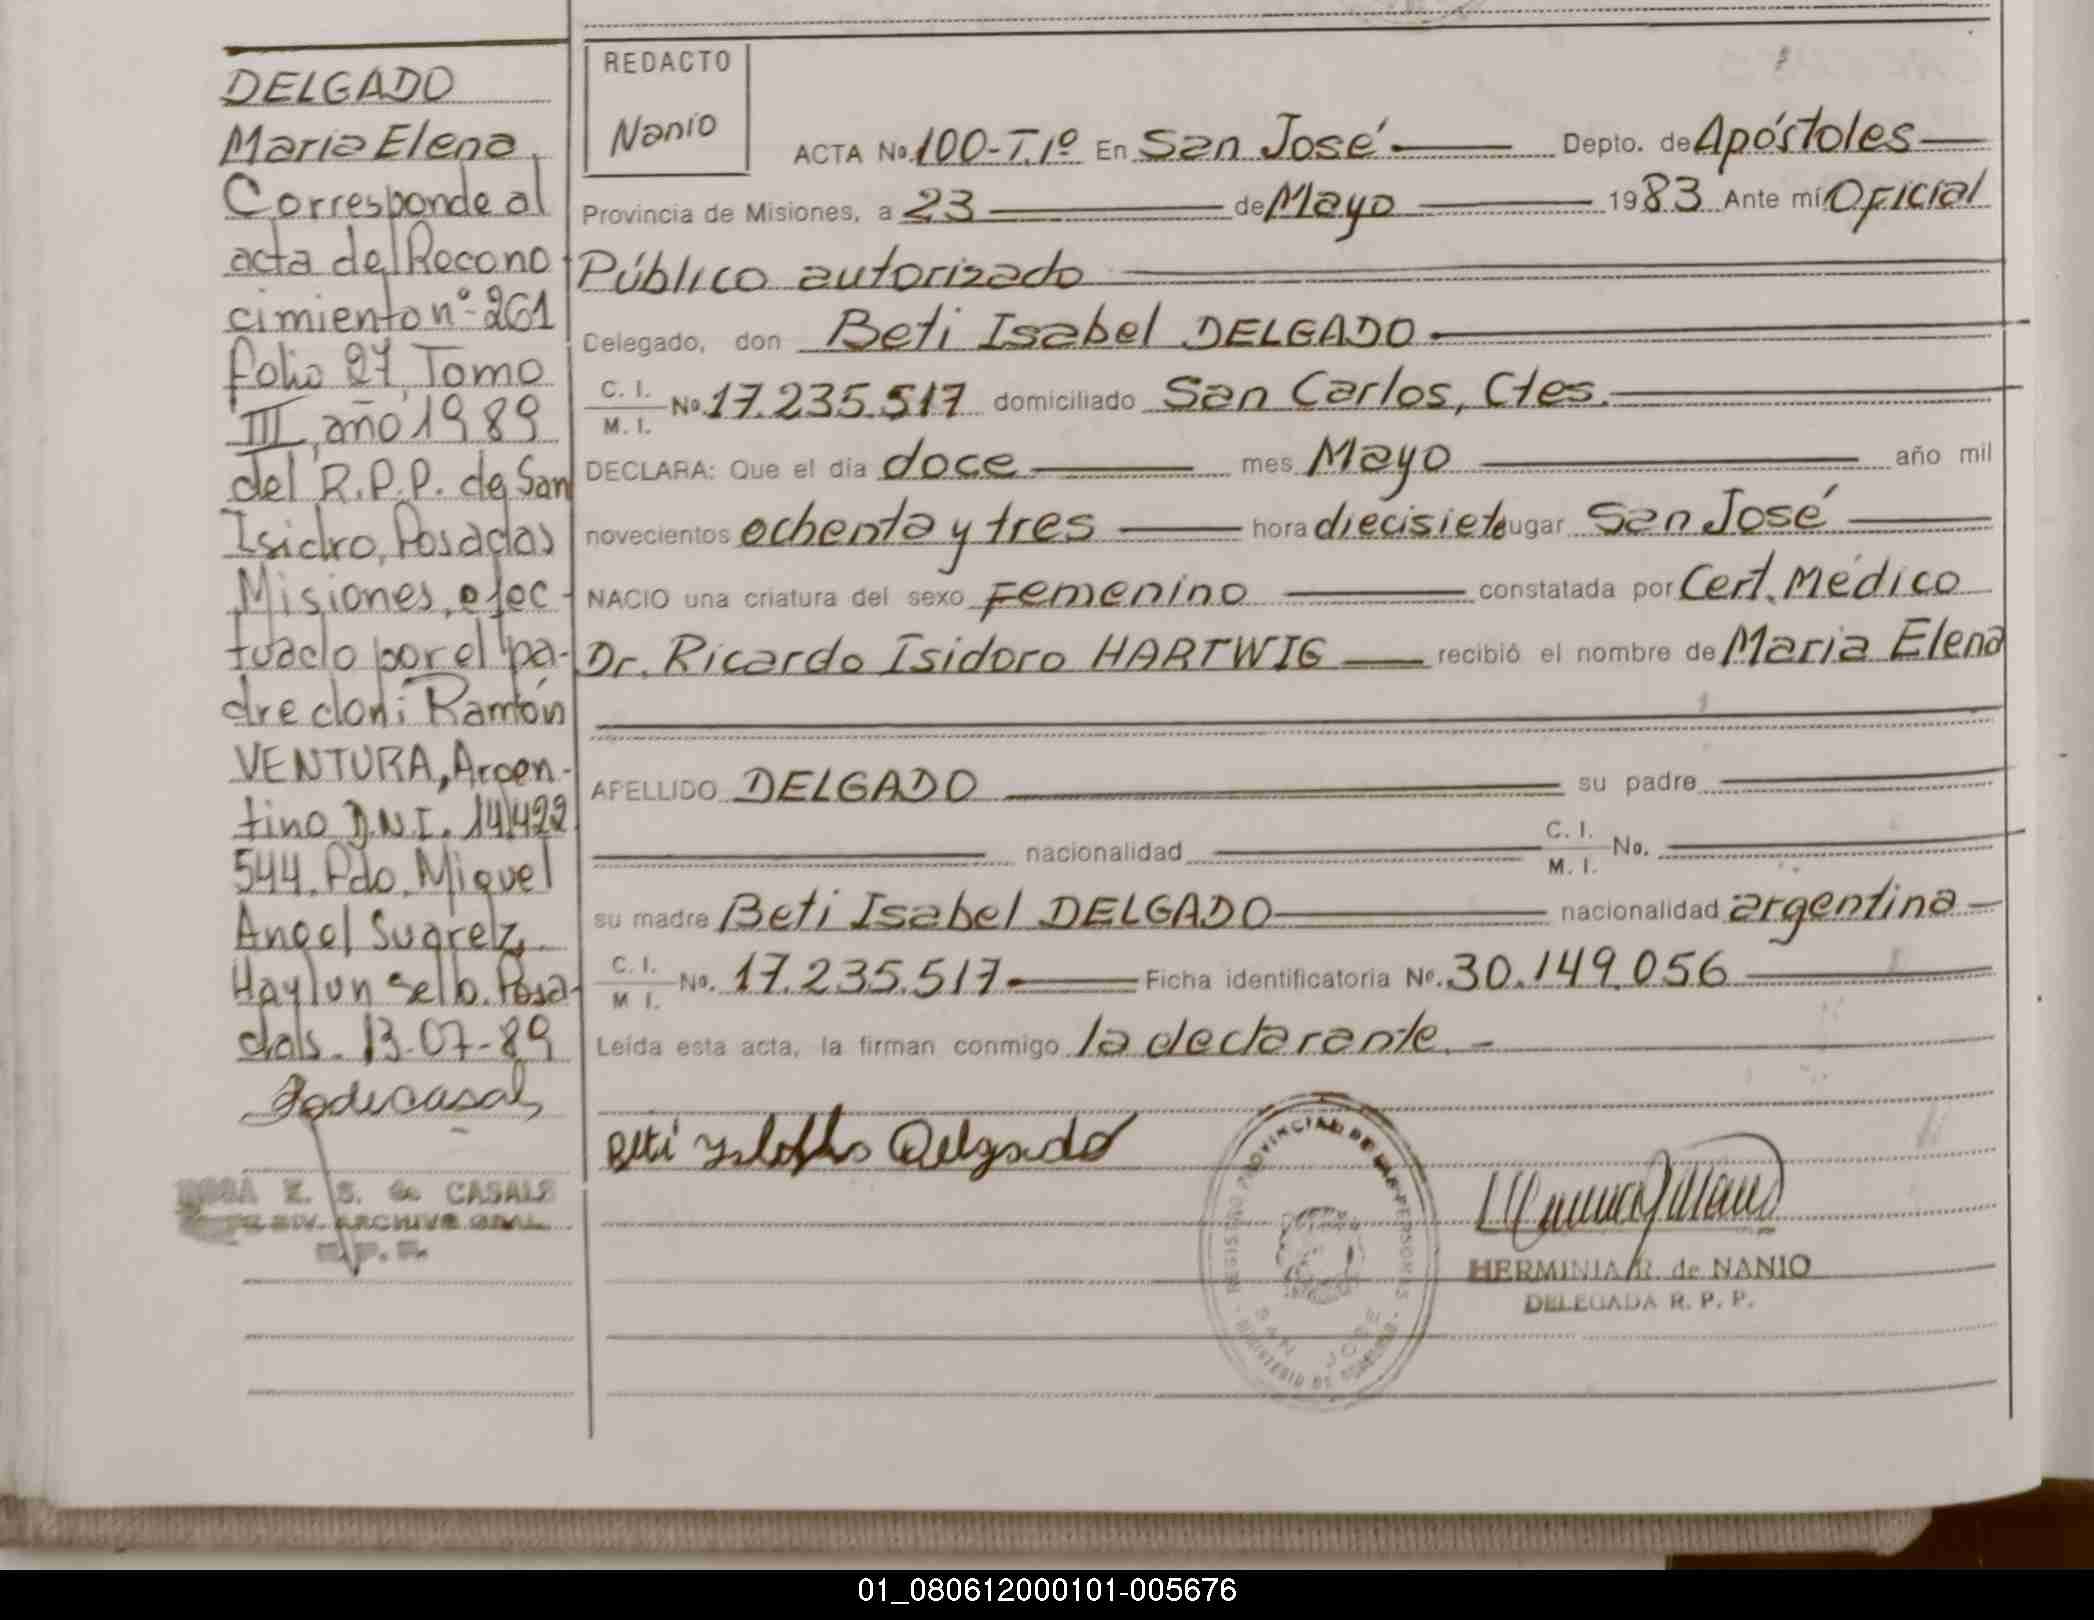 DELGADO
Maria Elena
Corresponde al
acta del Recono
cimiento nº 261
folio 27, Tomo
III, año 1989
del R.P.P. de San
Isidro, Posadas
Misiones, efec-
tuado por el pa-
dre don: Ramón
VENTURA, Argen-
tino D.N.I. 14.422
544. Pdo. Miguel
Angel Suarez,
Hay un sello. Posa-
das. 13-07-89
ROSA E. S. de CASALS
DIV. ARCHIVO GRAL.
R. P. P.
REDACTO
Nanio
ACTA No. 100-T.1º En San José Depto. de Apóstoles
Provincia de Misiones, a 23 de Mayo 1983 Ante mí Oficial
Público autorizado
Delegado, don Beti Isabel DELGADO
C. I.
M. I. No. 17.235.517 domiciliado San Carlos, Ctes.
DECLARA: Que el día doce mes Mayo año mil
novecientos ochenta y tres hora diecisiete lugar San José
NACIO una criatura del sexo Femenino constatada por Cert. Médico
Dr. Ricardo Isidoro HARTWIG recibió el nombre de Maria Elena
APELLIDO DELGADO su padre
nacionalidad C. I.
M. I. No.
su madre Beti Isabel DELGADO nacionalidad argentina
C. I.
M I. No. 17.235.517 Ficha identificatoria Nº. 30.149.056
Leída esta acta, la firman conmigo la declarante.-
Beti Delgado
REGISTRO PROVINCIAL DE LAS PERSONAS
SAN JOSE
MINISTERIO DE GOBIERNO
HERMINIA R. de NANIO
DELEGADA R. P. P.
01_080612000101-005676